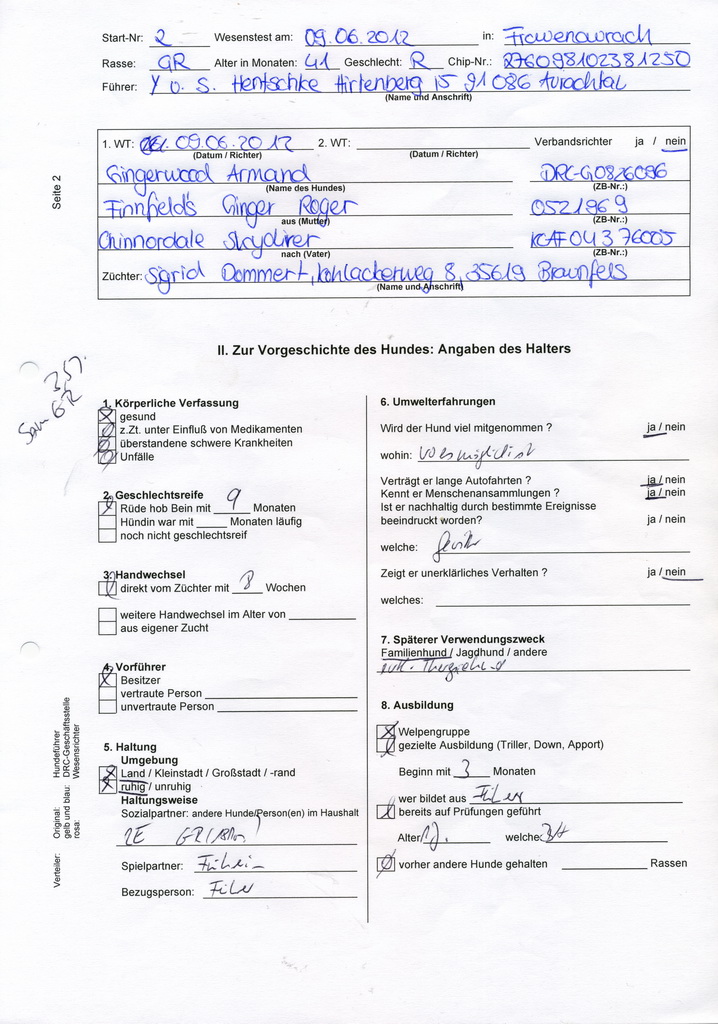 Start-Nr: 2 Wesenstest am: 09.06.2012 in: Frauenaurach
Rasse: GR Alter in Monaten: 41 Geschlecht: R Chip-Nr.: 276098102381250
Führer: Y u. S. Hentschke Hirtenberg 15 91086 Aurachtal
(Name und Anschrift)
Seite 2
1. WT: 09.06.2012 2. WT: Verbandsrichter ja / nein
(Datum / Richter) (Datum / Richter)
Gingerwood Armand DRC-G0826096
(Name des Hundes) (ZB-Nr.:)
Finnfields Ginger Roger 0521969
aus (Mutter) (ZB-Nr.:)
Chinnordale Skydiver KCAF04376005
nach (Vater) (ZB-Nr.:)
Züchter: Sigrid Dommert, Kohlackerweg 8, 35619 Braunfels
(Name und Anschrift)
II. Zur Vorgeschichte des Hundes: Angaben des Halters
3,5J.
GR
1. Körperliche Verfassung
gesund
z.Zt. unter Einfluß von Medikamenten
überstandene schwere Krankheiten
Unfälle
2. Geschlechtsreife
Rüde hob Bein mit 9 Monaten
Hündin war mit Monaten läufig
noch nicht geschlechtsreif
3. Handwechsel
direkt vom Züchter mit 8 Wochen
weitere Handwechsel im Alter von
aus eigener Zucht
4. Vorführer
Besitzer
vertraute Person
unvertraute Person
5. Haltung
Umgebung
Land / Kleinstadt / Großstadt / -rand
ruhig / unruhig
Haltungsweise
Sozialpartner: andere Hunde/Person(en) im Haushalt
2E GR
Spielpartner:
Bezugsperson:
6. Umwelterfahrungen
Wird der Hund viel mitgenommen ? ja / nein
wohin: wo es möglich ist
Verträgt er lange Autofahrten ? ja / nein
Kennt er Menschenansammlungen ? ja / nein
Ist er nachhaltig durch bestimmte Ereignisse
beeindruckt worden? ja / nein
welche:
Zeigt er unerklärliches Verhalten ? ja / nein
welches:
7. Späterer Verwendungszweck
Familienhund / Jagdhund / andere
8. Ausbildung
Welpengruppe
gezielte Ausbildung (Triller, Down, Apport)
Beginn mit 3 Monaten
wer bildet aus Führer
bereits auf Prüfungen geführt
Alter welche:
vorher andere Hunde gehalten Rassen
Verteiler: Original: Hundeführer
gelb und blau: DRC-Geschäftsstelle
rosa: Wesensrichter